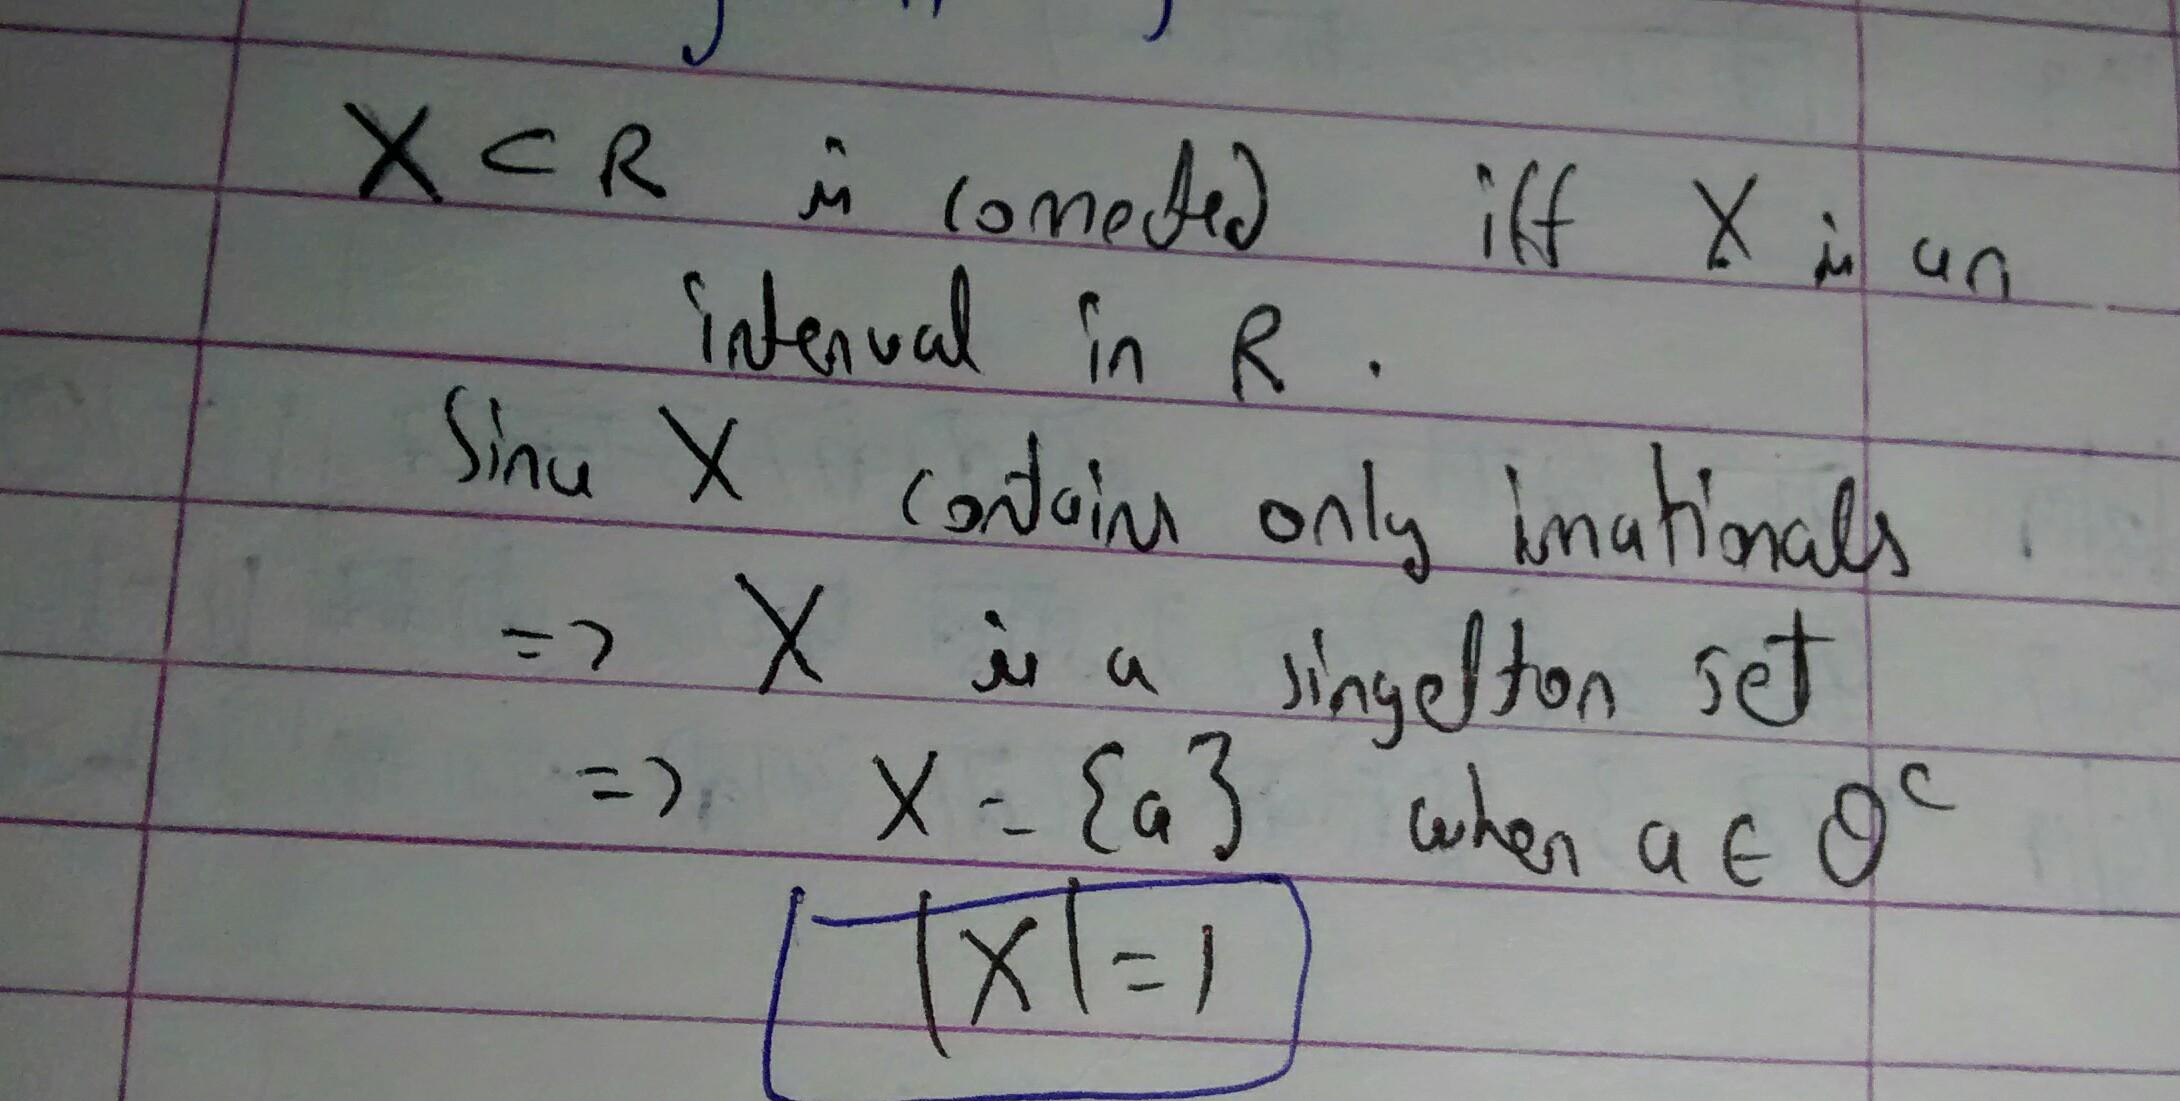 X ⊂ R is connected iff X is an
interval in R.
Since X contains only irrationals
=> X is a singelton set
=> X = {a} when a ∈ Q^c
|X| = 1